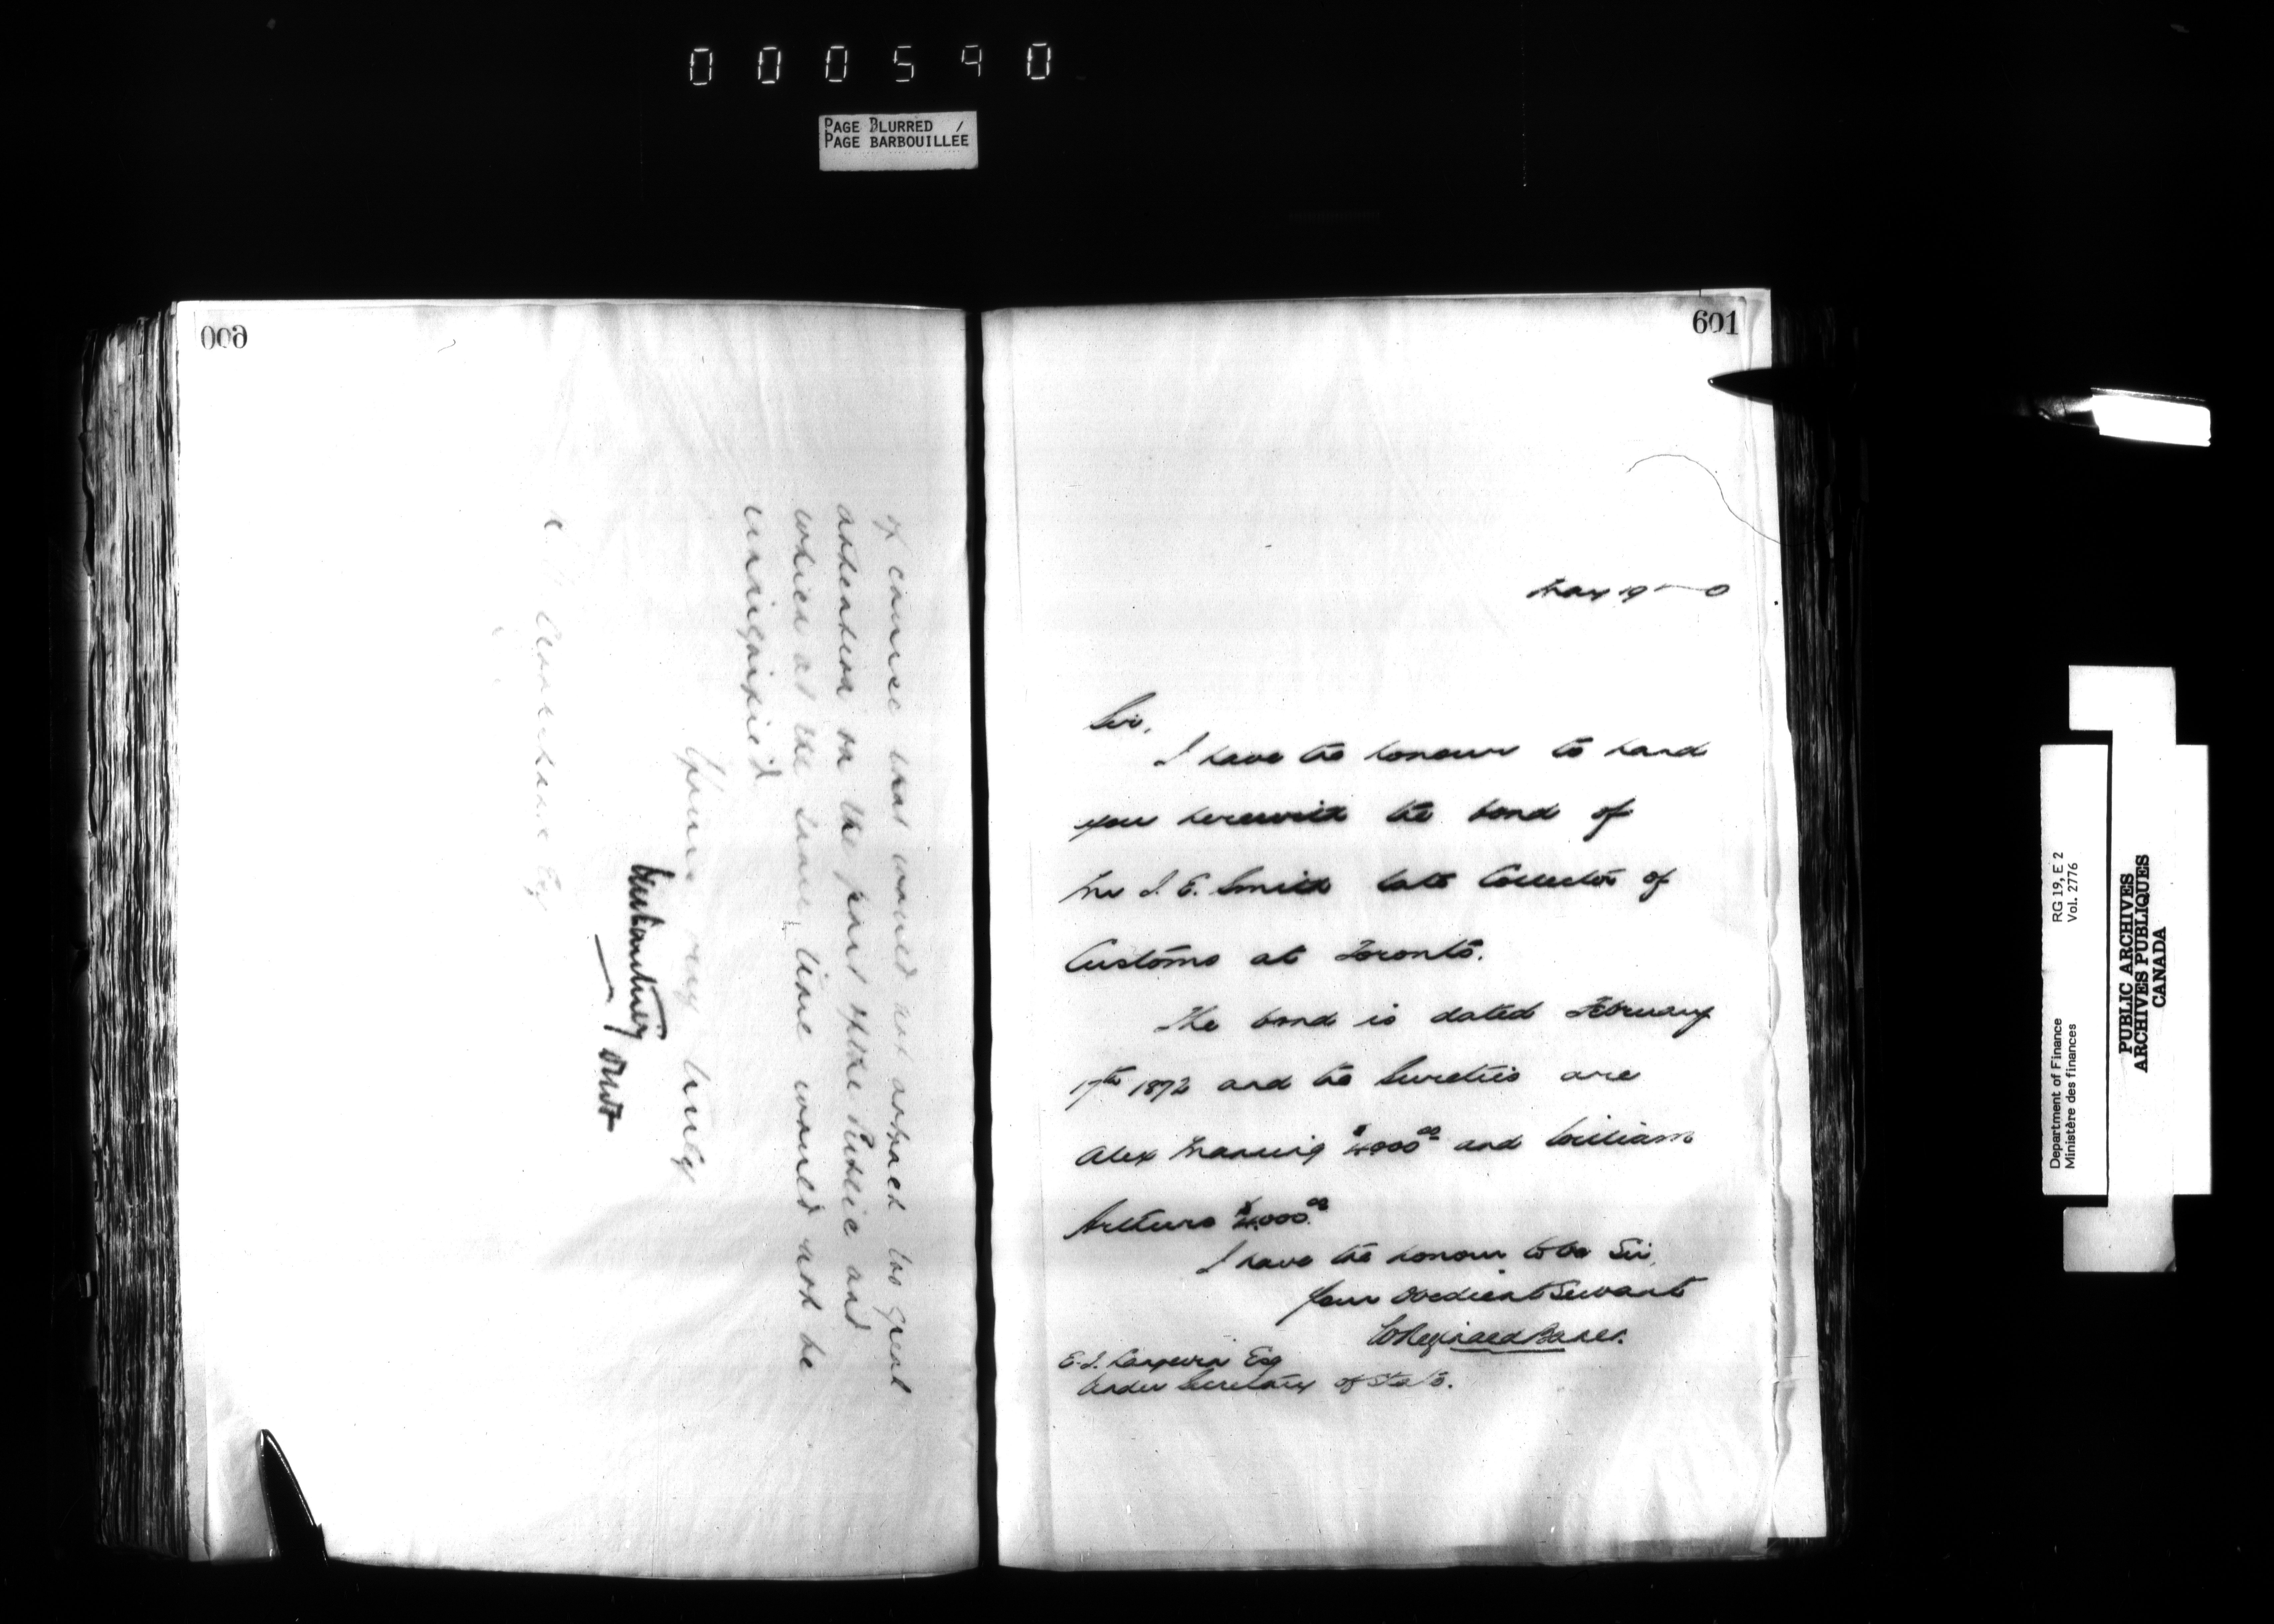 000590
PAGE BLURRED /
PAGE BARBOUILLEE
600
of course that would not attach too great
attention on the part of the Public and
which at the same time would not be
Yours very truly
Esq
601
May 19
Sir,
I have the honour to hand
you herewith the bond of
Mr J. E. Smith late Collector of
Customs at Toronto.
The bond is dated February
17th 1872 and the Sureties are
Alex Manning $4000.00 and William
Arthurs $4,000.00
I have the honour to be Sir,
Your obedient servant
W Reginald Baker.
E. J. Langevin Esq
Under Secretary of State.
Department of Finance
Ministère des finances
RG 19, E 2
Vol. 2776
PUBLIC ARCHIVES
ARCHIVES PUBLIQUES
CANADA